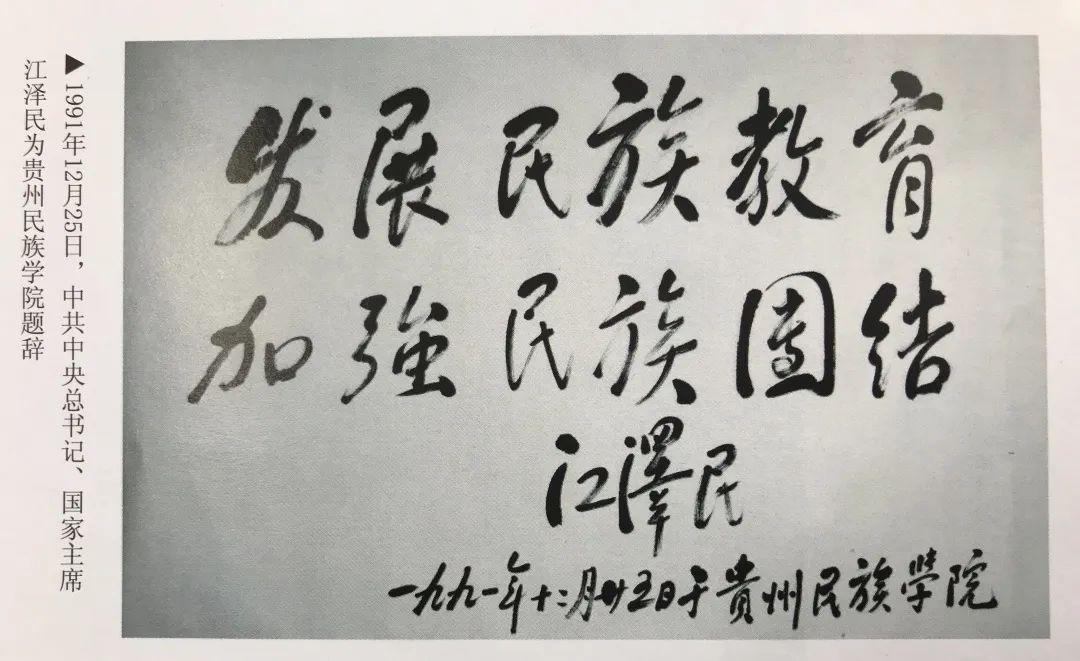 ▶1991年12月25日，中共中央总书记、国家主席
江泽民为贵州民族学院题辞
发展民族教育
加強民族團结
江澤民
一九九一年十二月廿五日于貴州民族學院